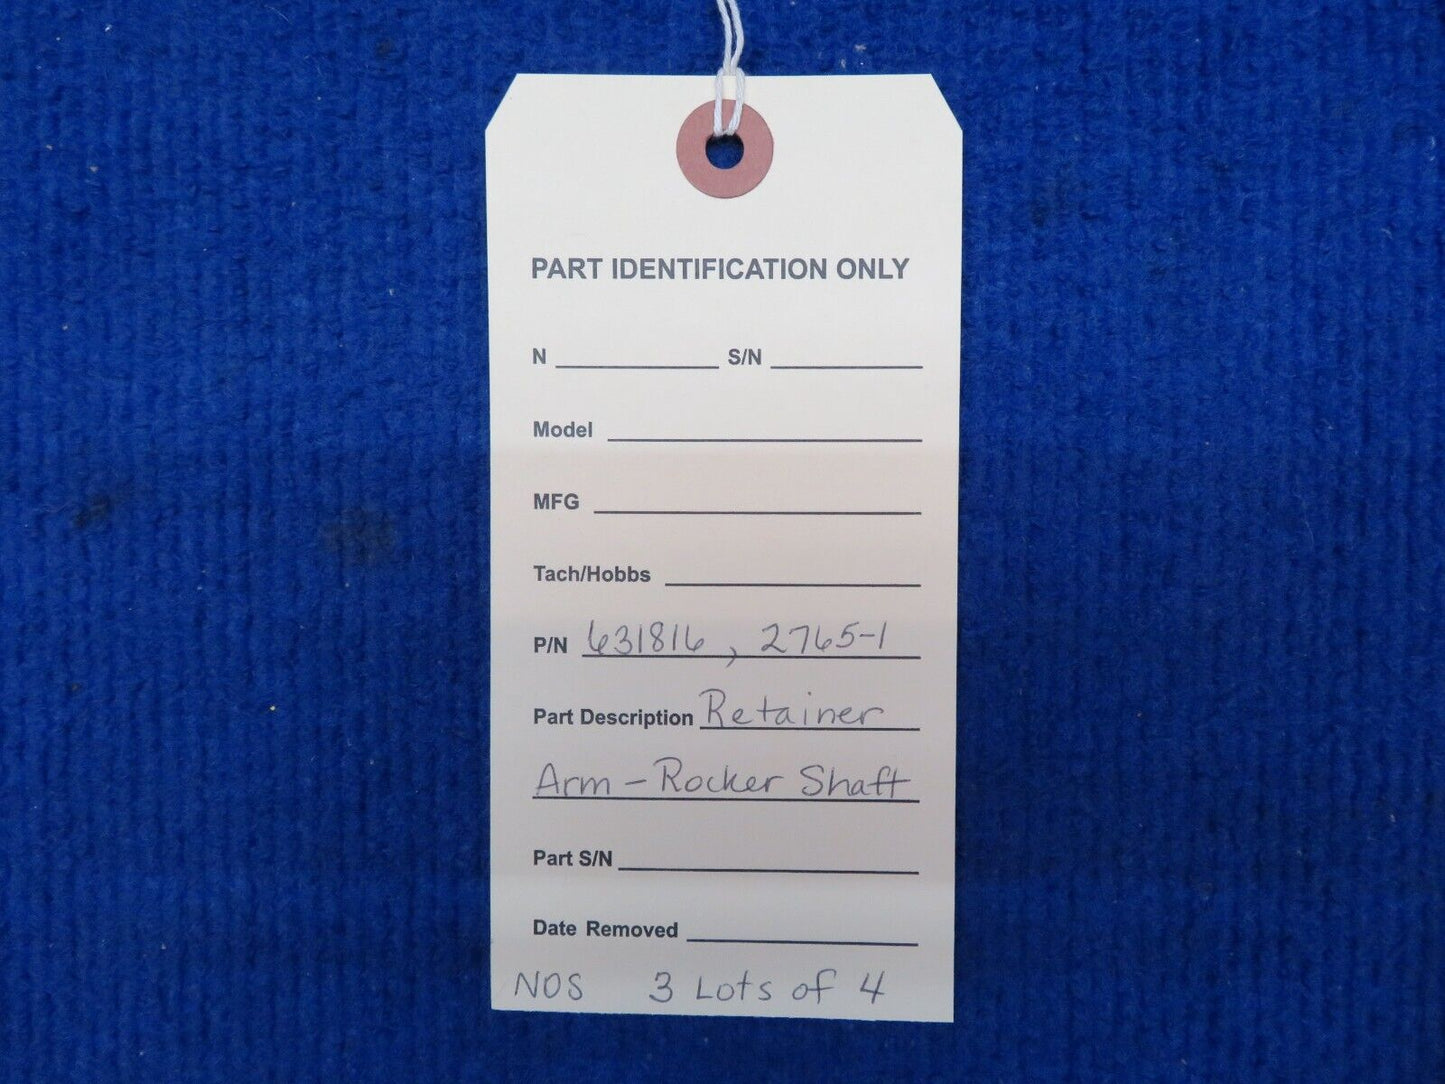 PART IDENTIFICATION ONLY
N S/N
Model
MFG
Tach/Hobbs
P/N 631816, 2765-1
Part Description Retainer
Arm - Rocker Shaft
Part S/N
Date Removed
NOS 3 Lots of 4